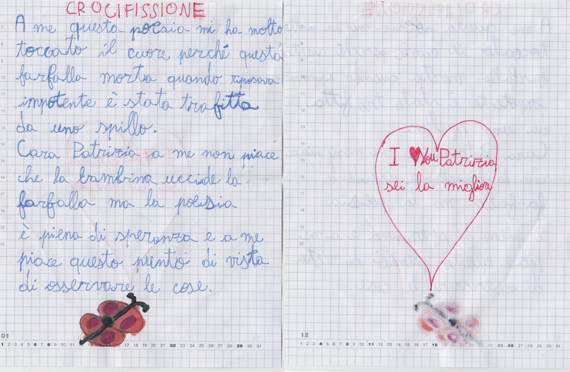 CROCIFISSIONE
A me questa poesia mi ha molto
toccato il cuore perché questa
farfalla mortia quando riposava
impotente è stata trafitta
da uno spillo.
Cara Patrizia a me non piace
che la bambina uccide la
farfalla ma la poesia
è piena di speranza e a me
piace questo punto di vista
di osservare le cose.
I ♥ You Patrizia
sei la migliore
01
12